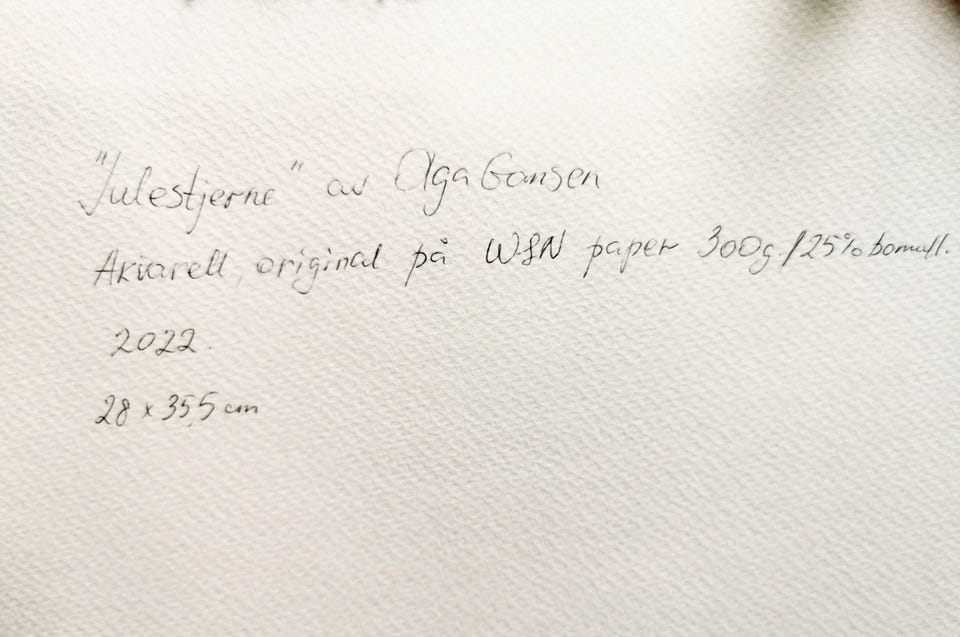 "Julestjerne" av Olga Gansen
Akvarell, original på W&N paper 300g./25% bomull.
2022.
28 x 35,5 cm